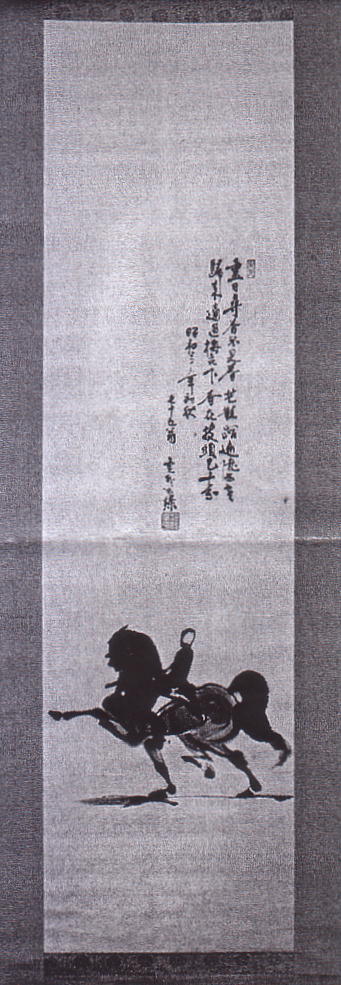 盡日尋春不見春芒鞋踏遍隴頭雲
歸来適過梅花下春在枝頭已十分
昭和 年初秋
翁